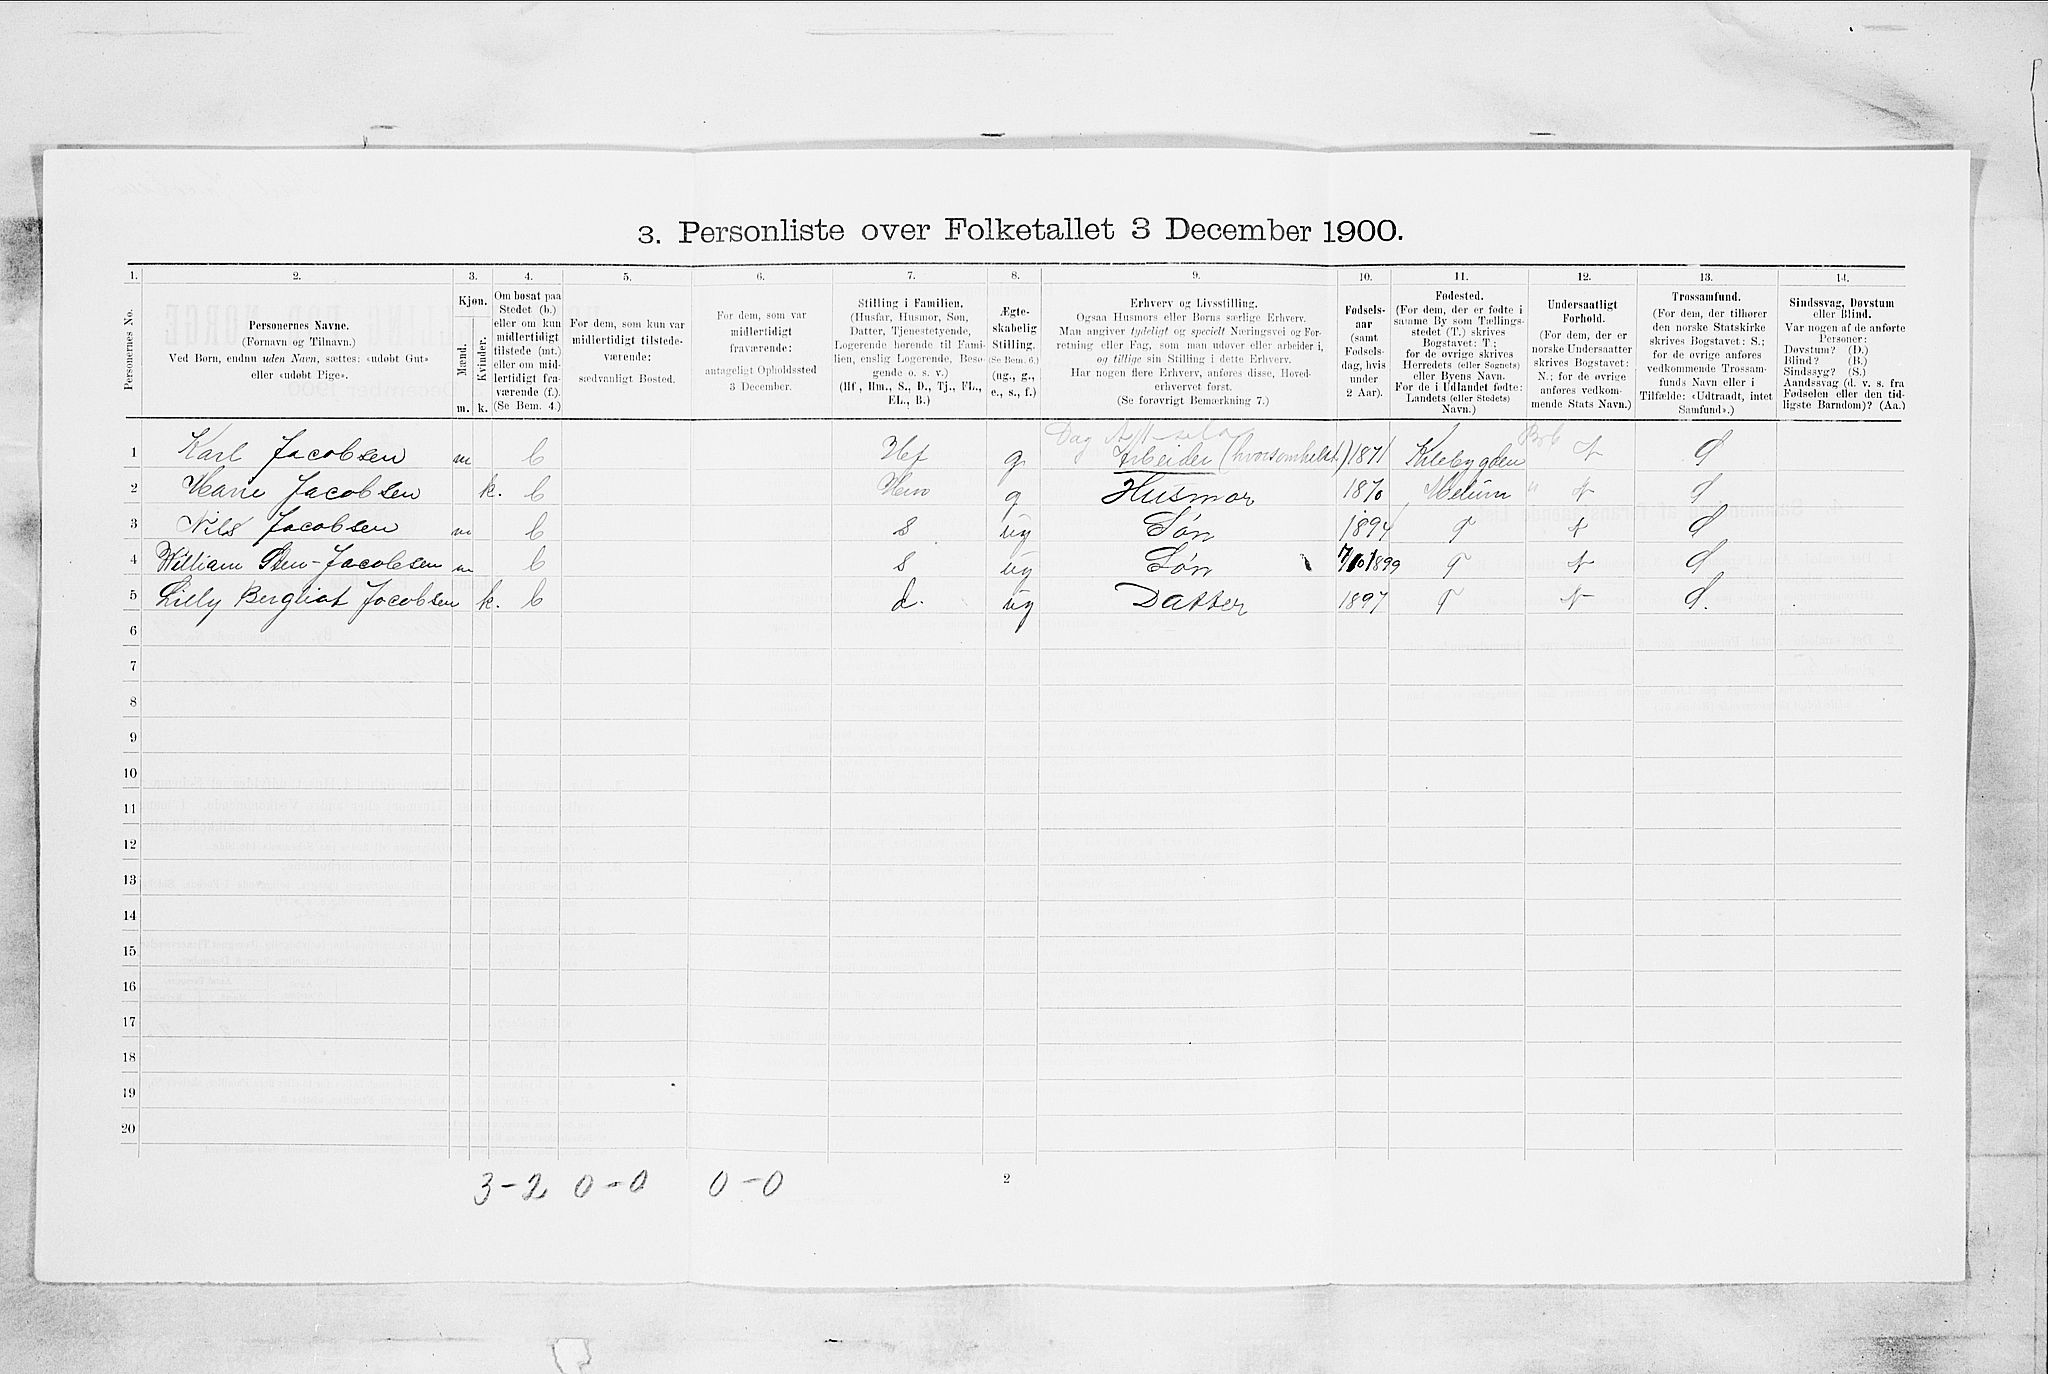 3. Personliste over Folketallet 3 December 1900.
1. 2. 3. 4. 5. 6. 7. 8. 9. 10. 11. 12. 13. 14.
Personernes No.
Personernes Navne.
(Fornavn og Tilnavn.)
Ved Børn, endnu uden Navn, sættes: «udøbt Gut»
eller «udøbt Pige».
Kjøn.
Mænd.
Kvinder.
m. k.
Om bosat paa
Stedet (b.)
eller om kun
midlertidigt
tilstede (mt.)
eller om mid-
lertidigt fra-
værende (f.).
(Se Bem. 4.)
For dem, som kun var
midlertidigt tilstede-
værende:
sædvanligt Bosted.
For dem, som var
midlertidigt
fraværende:
antageligt Opholdssted
3 December.
Stilling i Familien.
(Husfar, Husmor, Søn,
Datter, Tjenestetyende,
Logerende hørende til Fami-
lien, enslig Logerende, Besø-
gende o. s. v.)
(Hf, Hm., S., D., Tj., FL.,
EL., B.)
Ægte-
skabelig
Stilling.
(Se Bem. 6.)
(ug., g.,
e., s., f.)
Erhverv og Livsstilling.
Ogsaa Husmors eller Børns særlige Erhverv.
Man angiver tydeligt og specielt Næringsvei og For-
retning eller Fag, som man udøver eller arbeider i,
og tillige sin Stilling i dette Erhverv.
Har nogen flere Erhverv, anføres disse, Hoved-
erhvervet først.
(Se forøvrigt Bemærkning 7.)
Fødsels-
aar
(samt
Fødsels-
dag, hvis
under
2 Aar).
Fødested.
(For dem, der er fødte i
samme By som Tællings-
stedet (T.) skrives
Bogstavet: T;
for de øvrige skrives
Herredets (eller Sognets)
eller Byens Navn.
For de i Udlandet fødte:
Landets (eller Stedets)
Navn.)
Undersaatligt
Forhold.
(For dem, der er
norske Undersaatter
skrives Bogstavet:
N.; for de øvrige
anføres vedkom-
mende Stats Navn.)
Trossamfund.
(For dem, der tilhører
den norske Statskirke
skrives Bogstavet: S.;
for de øvrige anføres
vedkommende Trossam-
funds Navn eller i
Tilfælde: «Udtraadt, intet
Samfund».)
Sindssvag, Døvstum
eller Blind.
Var nogen af de anførte
Personer:
Døvstum? (D.)
Blind? (B.)
Sindssyg? (S.)
Aandssvag (d. v. s. fra
Fødselen eller den tid-
ligste Barndom)? (Aa.)
1 Karl Jacobsen m b Hf g Arbeider (hvorsomhelst.) 1871 Kilebygden N S
2 Marie Jacobsen k. b Hm g Husmor 1870 Melum " N S
3 Nils Jacobsen m b s ug Søn 1894 T N S
4 William Sten-Jacobsen m b s ug Søn 7/10 1899 T N S
5 Lilly Bergliot Jacobsen k. b d. ug Datter 1897 T N S.
6
7
8
9
10
11
12
13
14
15
16
17
18
19
20
3-2 0-0 0-0
2